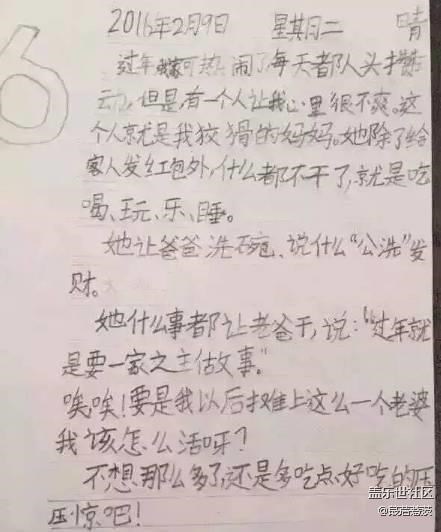 6
2016年2月9日 星期二 晴
过年我家可热闹了,每天都人头攒
动,但是有一个人让我心里很不爽。这
个人就是我狡猾的妈妈。她除了给
客人发红包外,什么都不干了,就是吃
喝、玩、乐、睡。
她让爸爸洗碗、说什么“公洗”发
财。
她什么事都让老爸干,说:“过年就
是要一家之主做事。”
唉唉!要是我以后摊上这么一个老婆
我该怎么活呀?
不想那么多了,还是多吃点好吃的压
压惊吧!
盖乐世社区